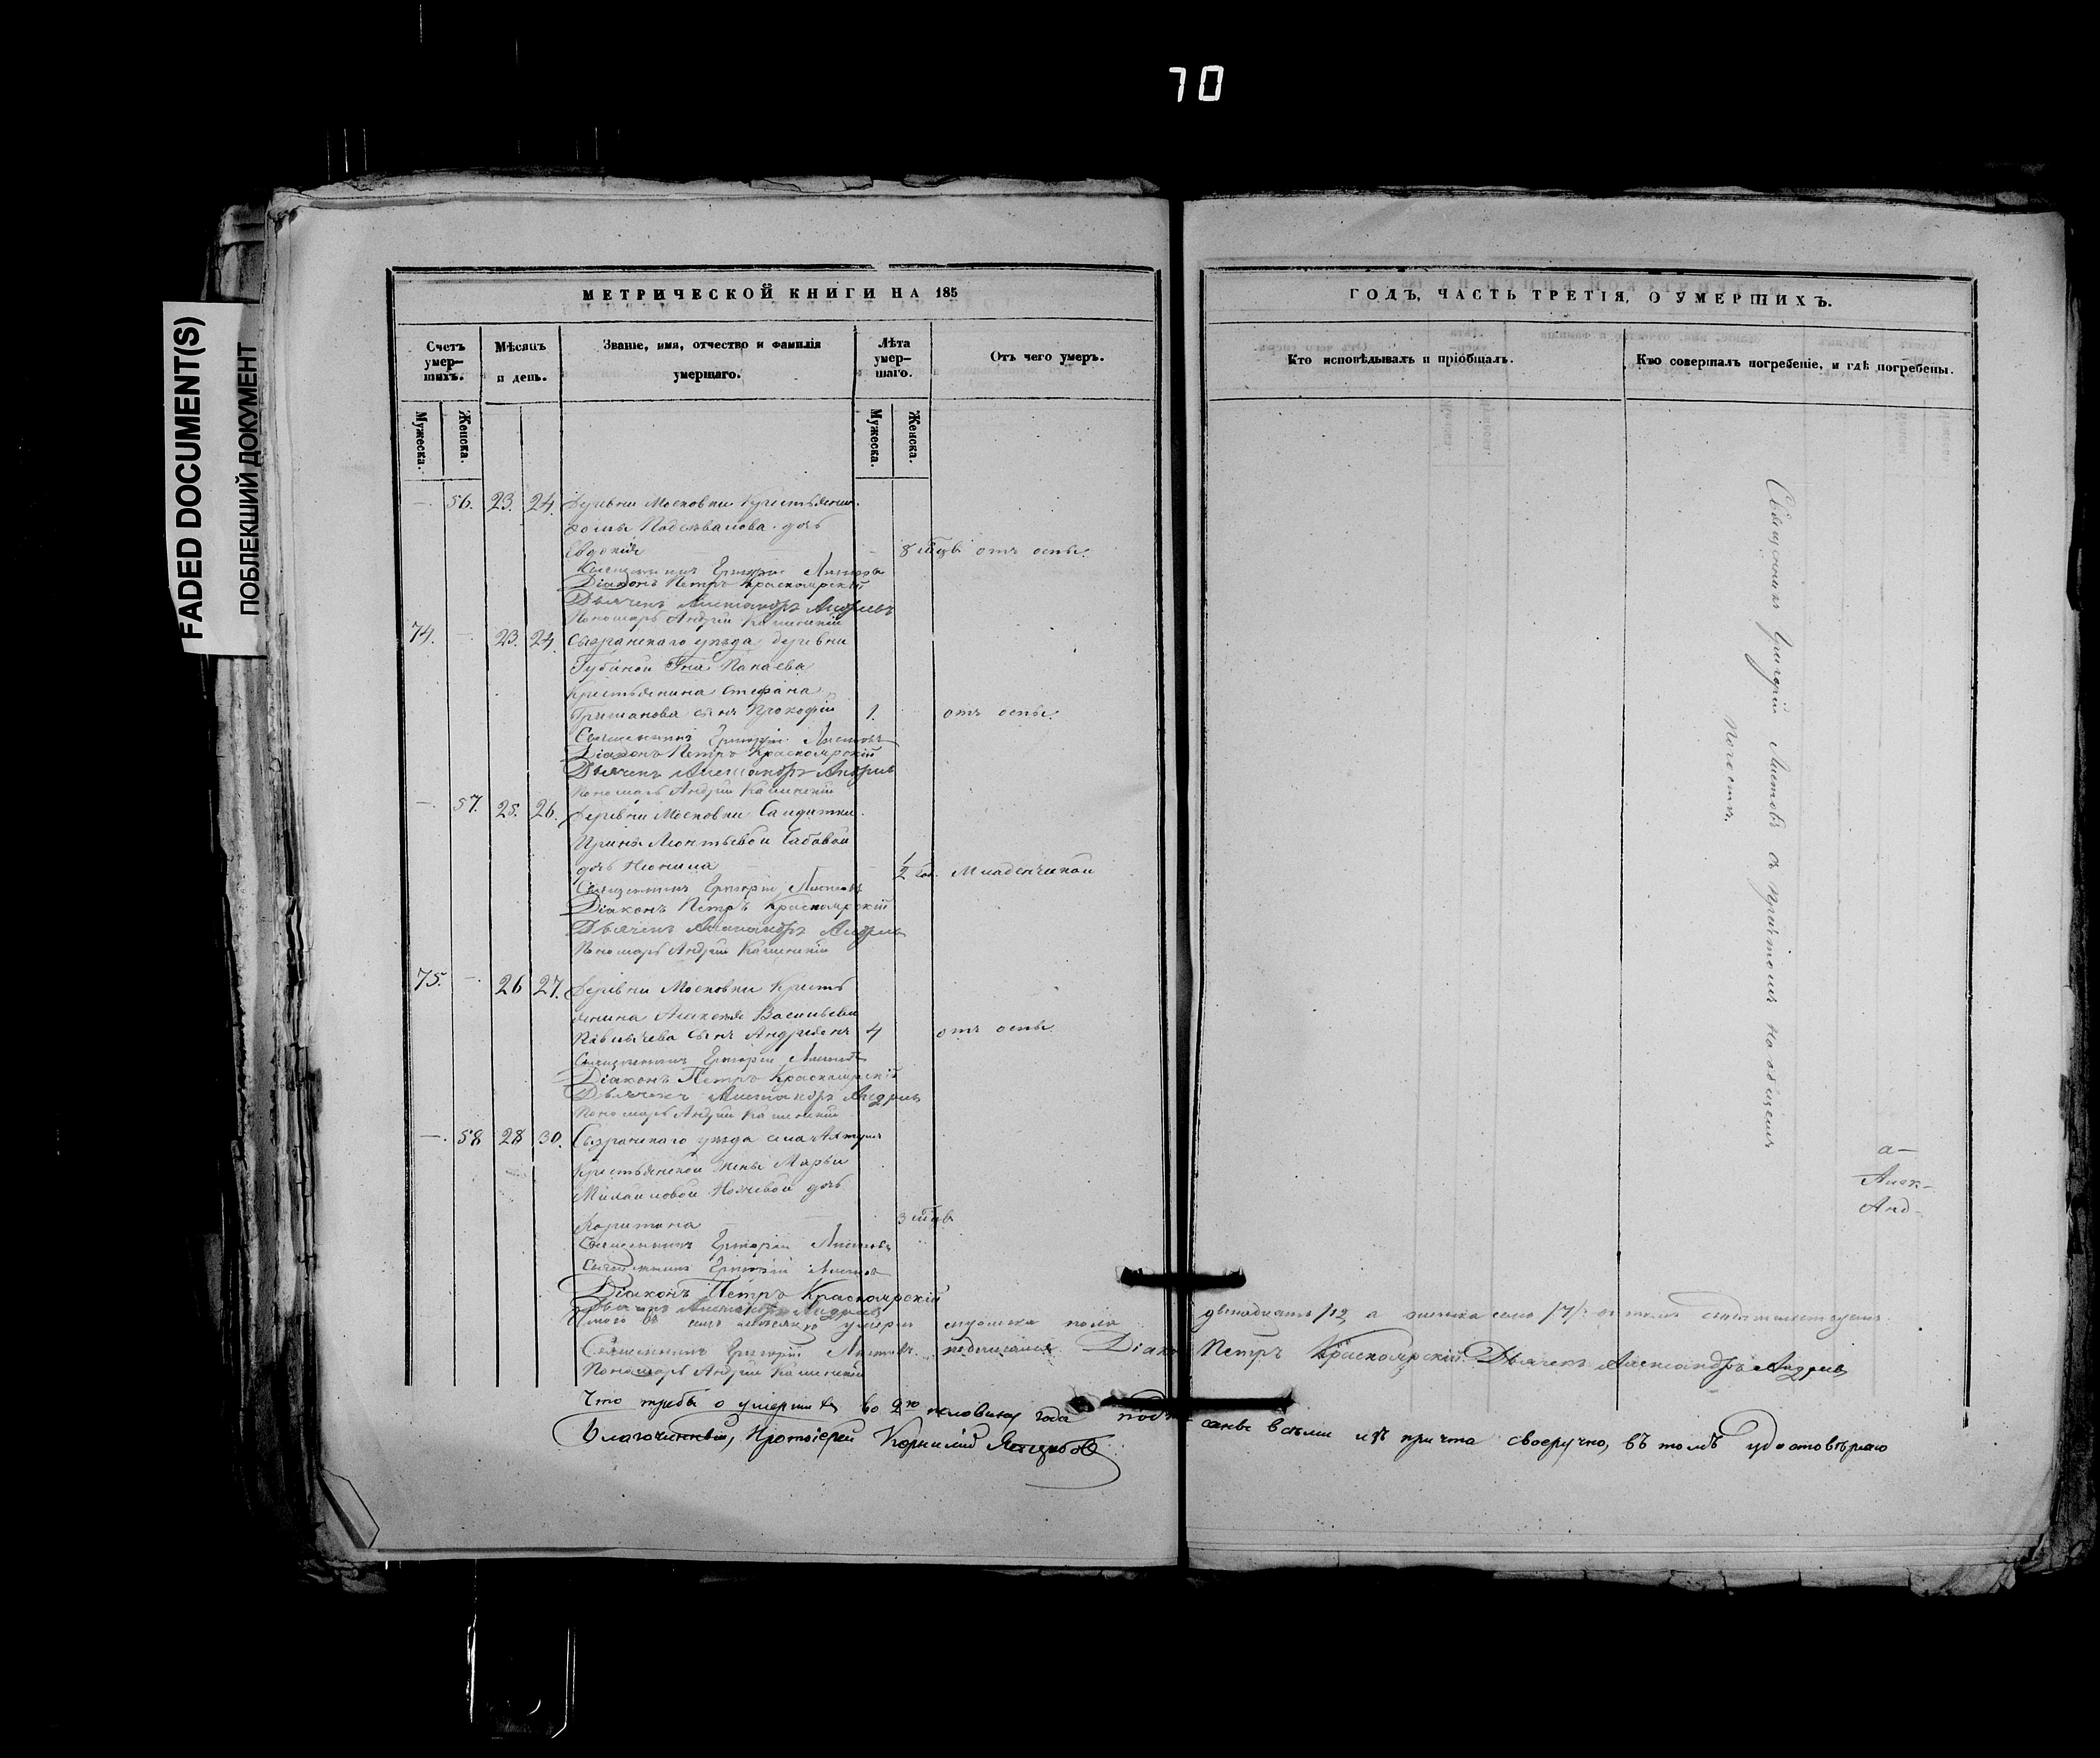 70
FADED DOCUMENT(S)
ПОБЛЕКШИЙ ДОКУМЕНТ
МЕТРИЧЕСКОЙ КНИГИ НА 185
Счетъ умер-шихъ.
Мѣсяцъ и день.
Званіе, имя, отчество и фамилія умершаго.
Лѣта умер-шаго.
Отъ чего умеръ.
Мужеска.
Женска.
Мужеска.
Женска.
— 56. 23. 24. Деревни Московки Крестьянина
дочь
Евдокія — 8 мѣцъ отъ оспы.
Священникъ Григорій Листовъ
Діаконъ Петръ Красноярскій
Дьячекъ Александръ Андреевъ
Пономарь Андрей Каменскій
74. — 23. 24. Сызранскаго уѣзда деревни
Губиной Гна
Крестьянина Стефана
Гришанова сынъ Прокофій 1. отъ оспы.
Священникъ Григорій Листовъ
Діаконъ Петръ Красноярскій
Дьячекъ Александръ Андреевъ
Пономарь Андрей Каменскій
— 57. 25. 26. Деревни Московки Солдатки
Ирины Леонтьевой
дочь Неонила — 1/2 год. Младенческой
Священникъ Григорій Листовъ
Діаконъ Петръ Красноярскій
Дьячекъ Александръ Андреевъ
Пономарь Андрей Каменскій
75. — 26 27. Деревни Московки Кресть
янина Алексея Васильева
сынъ Андреянъ 4 отъ оспы
Священникъ Григорій Листовъ
Діаконъ Петръ Красноярскій
Дьячекъ Александръ Андреевъ
Пономарь Андрей Каменскій
—. 58 28 30. Сызранскаго уѣзда села
Крестьянской жены Марьи
Михайловой дочь
Харитина 3 мѣцъ
Священникъ Григорій Листовъ
Священникъ Григорій Листовъ
Діаконъ Петръ Красноярскій
Дьячекъ Александръ Андреевъ
умерш мужеска пола двенадцать /12, а женска семь /7/.
Священникъ Григорій Листовъ. подписался Діаконъ Петръ Красноярскій Дьячекъ Александръ Андреевъ
Пономарь Андрей Каменскій
Что требы о умершихъ во 2ю половину года подписаны всѣми изъ причта своеручно, въ томъ удостовѣряю
Благочинный, Протоіерей Корнилій
ГОДЪ, ЧАСТЬ ТРЕТІЯ, О УМЕРШИХЪ.
Кто исповѣдывалъ и пріобщалъ.
Кто совершалъ погребеніе, и гдѣ погребены.
Священникъ Григорій Листовъ съ причтомъ на общемъ
погостѣ.
а—
Алек-
Анд-